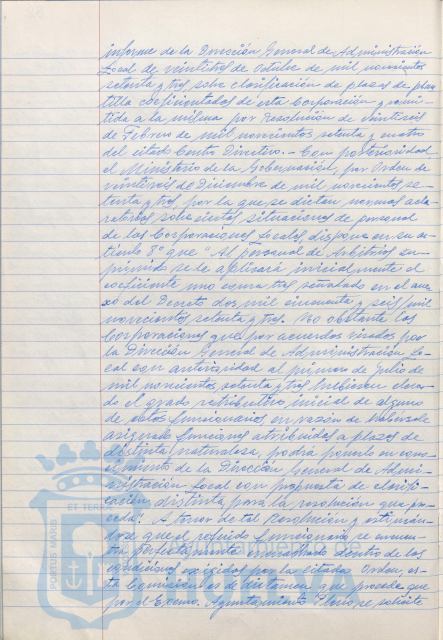 informe de la Dirección General de Administración
Local de veintitres de Octubre de mil novecientos
setenta y tres sobre clasificación de plazas de plan
tilla coeficientados de esta Corporación y remi-
tida a la misma por Resolución de veintiseis
de Febrero de mil novecientos setenta y cuatro
del citado Centro Directivo.- Con posterioridad
el Ministerio de la Gobernación, por Orden de
veintiseis de Diciembre de mil novecientos se-
tenta y tres, por la que se dictan normas acla-
ratorias sobre ciertas situaciones de personal
de las Corporaciones Locales, dispone en su ar-
tículo 8º que "Al personal de Arbitrios su-
primidos se le aplicará inicialmente el
coeficiente uno coma tres señalado en el ane-
xo del Decreto dos mil cincuenta y seis mil
novecientos setenta y tres. No obstante las
Corporaciones que por acuerdos visados por
la Dirección General de Administración Lo-
cal con anterioridad al primero de Julio de
mil novecientos setenta y tres hubiesen eleva-
do el grado retributivo inicial de alguno
de estos funcionarios, en razón de habérsele
asignado funciones atribuidas a plazas de
distinta naturaleza, podrá ponerlo en cono-
cimiento de la Dirección General de Admi-
nistración Local con propuesta de clasifi-
cación distinta para la resolución que pro-
ceda". A tenor de tal Resolución y estimán-
dose que el referido funcionario se encuen-
tra perfectamente enmarcado dentro de las
condiciones exigidas por la citada Orden, es-
ta Comisión es de dictamen que procede que
por el Excmo. Ayuntamiento Pleno se solicite
PORTUS MARIS
ET TERRAE
HUELVA